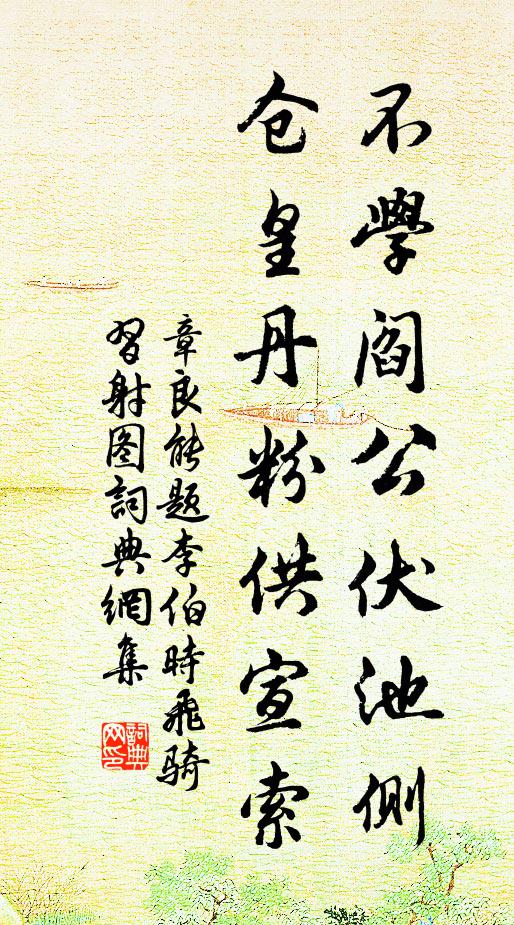 不學阎公伏池侧
仓皇丹粉供宣索
章良能题李伯時飛骑
習射图詞典網集
詞典
网印